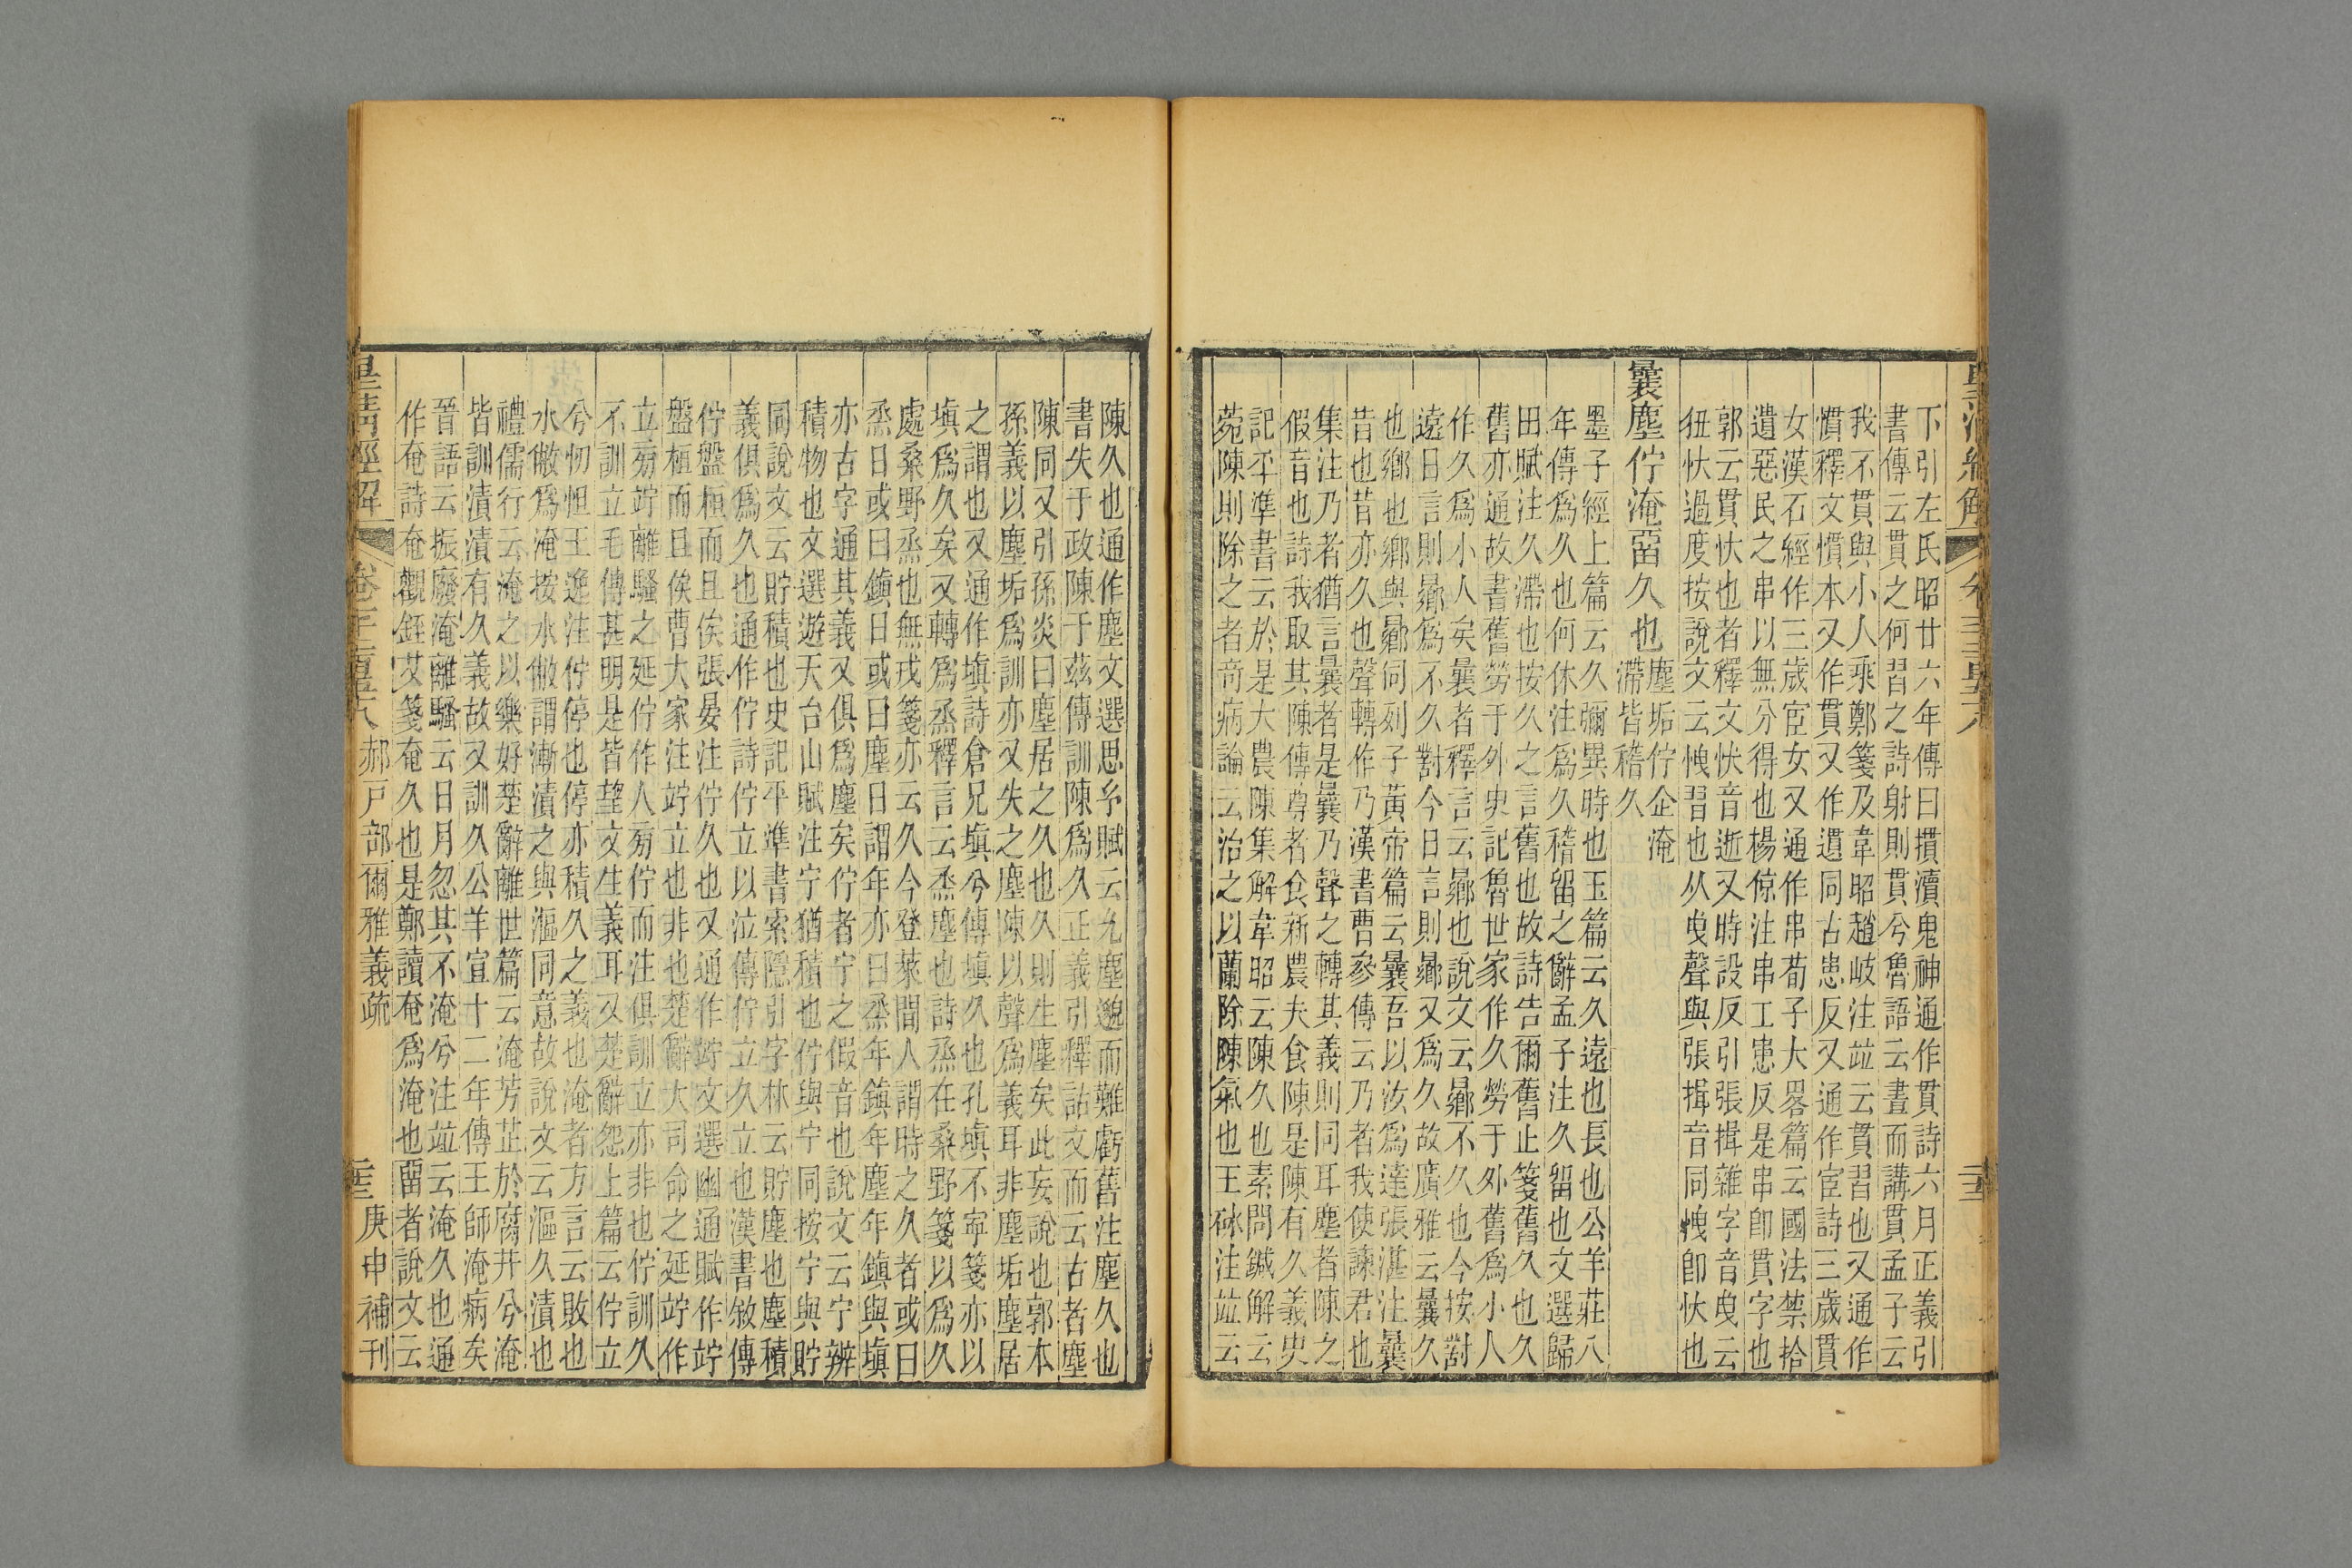 下引左氏昭廿六年傳曰摜瀆鬼神通作貫詩六月正義引
書傳云貫之何習之詩射則貫兮魯語云晝而講貫孟子云
我不貫與小人乘鄭箋及韋昭趙岐注竝云貫習也又通作
慣釋文慣本又作貫又作遺同古患反又通作宦詩三歲貫
女漢石經作三歲宦女又通作串荀子大畧篇云國法禁拾
遺惡民之串以無分得也楊倞注串工患反是串卽貫字也
郭云貫忕也者釋文忕音逝又時設反引張揖雜字音曳云
狃忕過度按說文云愧習也从曳聲與張揖音同愧卽忕也
曩塵佇淹畱久也
塵垢佇企淹
滯皆稽久
墨子經上篇云久彌異時也玉篇云久遠也長也公羊莊八
年傳爲久也何休注爲久稽留之辭孟子注久留也文選歸
田賦注久滯也按久之言舊也故詩告爾舊止箋舊久也久
舊亦通故書舊勞于外史記魯世家作久勞于外舊爲小人
作久爲小人矣曩者釋言云曏也說文云曏不久也今按對
遠日言則曏爲不久對今日言則曏又爲久故廣雅云曩久
也鄉也鄉與曏同列子黃帝篇云曩吾以汝爲達張湛注曩
昔也昔亦久也聲轉作乃漢書曹參傳云乃者我使諫君也
集注乃者猶言曩者是曩乃聲之轉其義則同耳塵者陳之
假音也詩我取其陳傳尊者食新農夫食陳是陳有久義史
記平準書云於是大農陳集解韋昭云陳久也素問鍼解云
菀陳則除之者奇病論云治之以蘭除陳氣也王砅注竝云
陳久也通作塵文選思玄賦云允塵邈而難虧舊注塵久也
書失于政陳于茲傳訓陳爲久正義引釋詁文而云古者塵
陳同又引孫炎曰塵居之久也久則生塵矣此妄說也郭本
孫義以塵垢爲訓亦又失之塵陳以聲爲義耳非塵垢塵居
之謂也又通作塡詩倉兄塡兮傳塡久也孔塡不寧箋亦以
塡爲久矣又轉爲烝釋言云烝塵也詩烝在桑野箋以爲久
處桑野烝也無戎箋亦云久今登萊閒人謂時之久者或曰
烝日或曰鎮日或曰塵日謂年亦曰烝年鎮年塵年鎮與塡
亦古字通其義又俱爲塵矣佇者宁之假音也說文云宁辨
積物也文選遊天台山賦注宁猶積也佇與宁同按宁與貯
同說文云貯積也史記平準書索隱引字林云貯塵也塵積
義俱爲久也通作佇詩佇立以泣傳佇立久立也漢書敘傳
佇盤桓而且俟張晏注佇久也又通作竚文選幽通賦作竚
盤桓而且俟曹大家注竚立也非也楚辭大司命之延竚作
立㫄竚離騷之延佇作人㫄佇而注俱訓立亦非也佇訓久
不訓立毛傳甚明是皆望文生義耳又楚辭怨上篇云佇立
兮忉怛王逸注佇停也停亦積久之義也淹者方言云敗也
水敝爲淹按水敝謂漸漬之與漚同意故說文云漚久漬也
禮儒行云淹之以樂好楚辭離世篇云淹芳芷於腐井兮淹
皆訓漬漬有久義故又訓久公羊宣十二年傳王師淹病矣
晉語云振廢淹離騷云日月忽其不淹兮注竝云淹久也通
作奄詩奄觀銍艾箋奄久也是鄭讀奄爲淹也畱者說文云
皇淸經解 卷千二百五十八 郝戶部爾雅義疏 庚申補刊